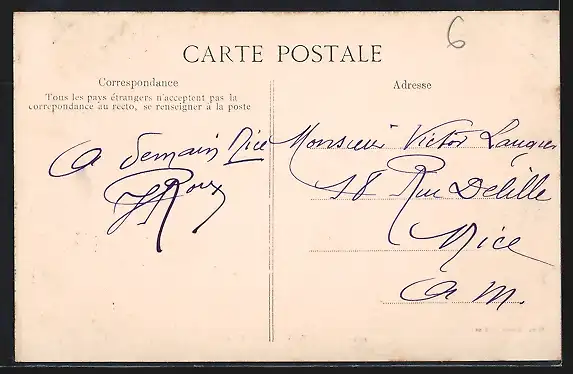 6
CARTE POSTALE
Correspondance
Tous les pays étrangers n'acceptent pas la
correpondance au recto, se renseigner à la poste
Adresse
A demain Nice
Roux
Monsieur Victor Laugier
18 Rue Delille
Nice
A M.